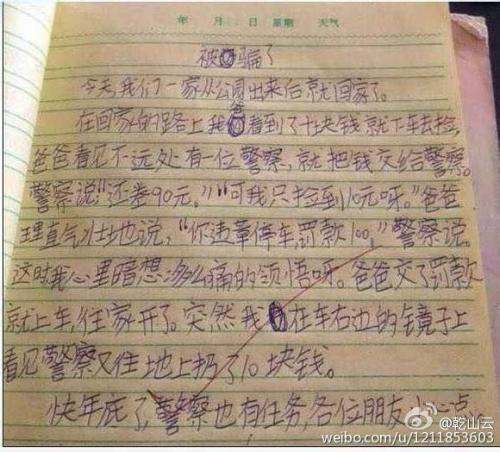 年 月 日 星期 天气
被骗了
今天,我们一家从公园出来后就回家了。
在回家的路上我爸看到了十块钱,就下车去捡,
爸爸看见不远处有一位警察,就把钱交给警察。
警察说“还差90元。”“可我只捡到10元呀。”爸爸
理直气壮地说,“你违章停车,罚款100,”警察说。
这时我心里暗想:多么痛的领悟呀。爸爸交了罚款
就上车,往家开了。突然我在车右边的镜子上
看见警察又往地上扔了10块钱。
快年底了,警察也有任务,各位朋友小心点。
@乾山云
weibo.com/u/1211853603